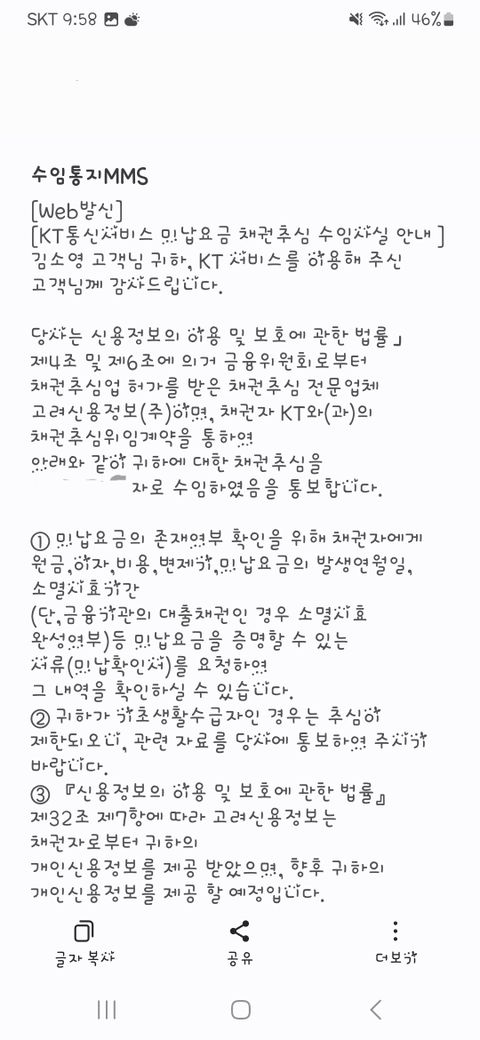 SKT 9:58
46%
수임통지MMS
[Web발신]
[KT통신서비스 미납요금 채권추심 수임사실 안내 ]
김소영 고객님 귀하, KT 서비스를 이용해 주신
고객님께 감사드립니다.
당사는 신용정보의 이용 및 보호에 관한 법률」
제4조 및 제6조에 의거 금융위원회로부터
채권추심업 허가를 받은 채권추심 전문업체
고려신용정보(주)이며, 채권자 KT와(과)의
채권추심위임계약을 통하여
아래와 같이 귀하에 대한 채권추심을
자로 수임하였음을 통보합니다.
① 미납요금의 존재여부 확인을 위해 채권자에게
원금,이자,비용,변제기,미납요금의 발생연월일,
소멸시효기간
(단,금융기관의 대출채권인 경우 소멸시효
완성여부)등 미납요금을 증명할 수 있는
서류(미납확인서)를 요청하여
그 내역을 확인하실 수 있습니다.
② 귀하가 기초생활수급자인 경우는 추심이
제한되오니, 관련 자료를 당사에 통보하여 주시기
바랍니다.
③ 『신용정보의 이용 및 보호에 관한 법률』
제32조 제7항에 따라 고려신용정보는
채권자로부터 귀하의
개인신용정보를 제공 받았으며, 향후 귀하의
개인신용정보를 제공 할 예정입니다.
글자 복사
공유
더보기